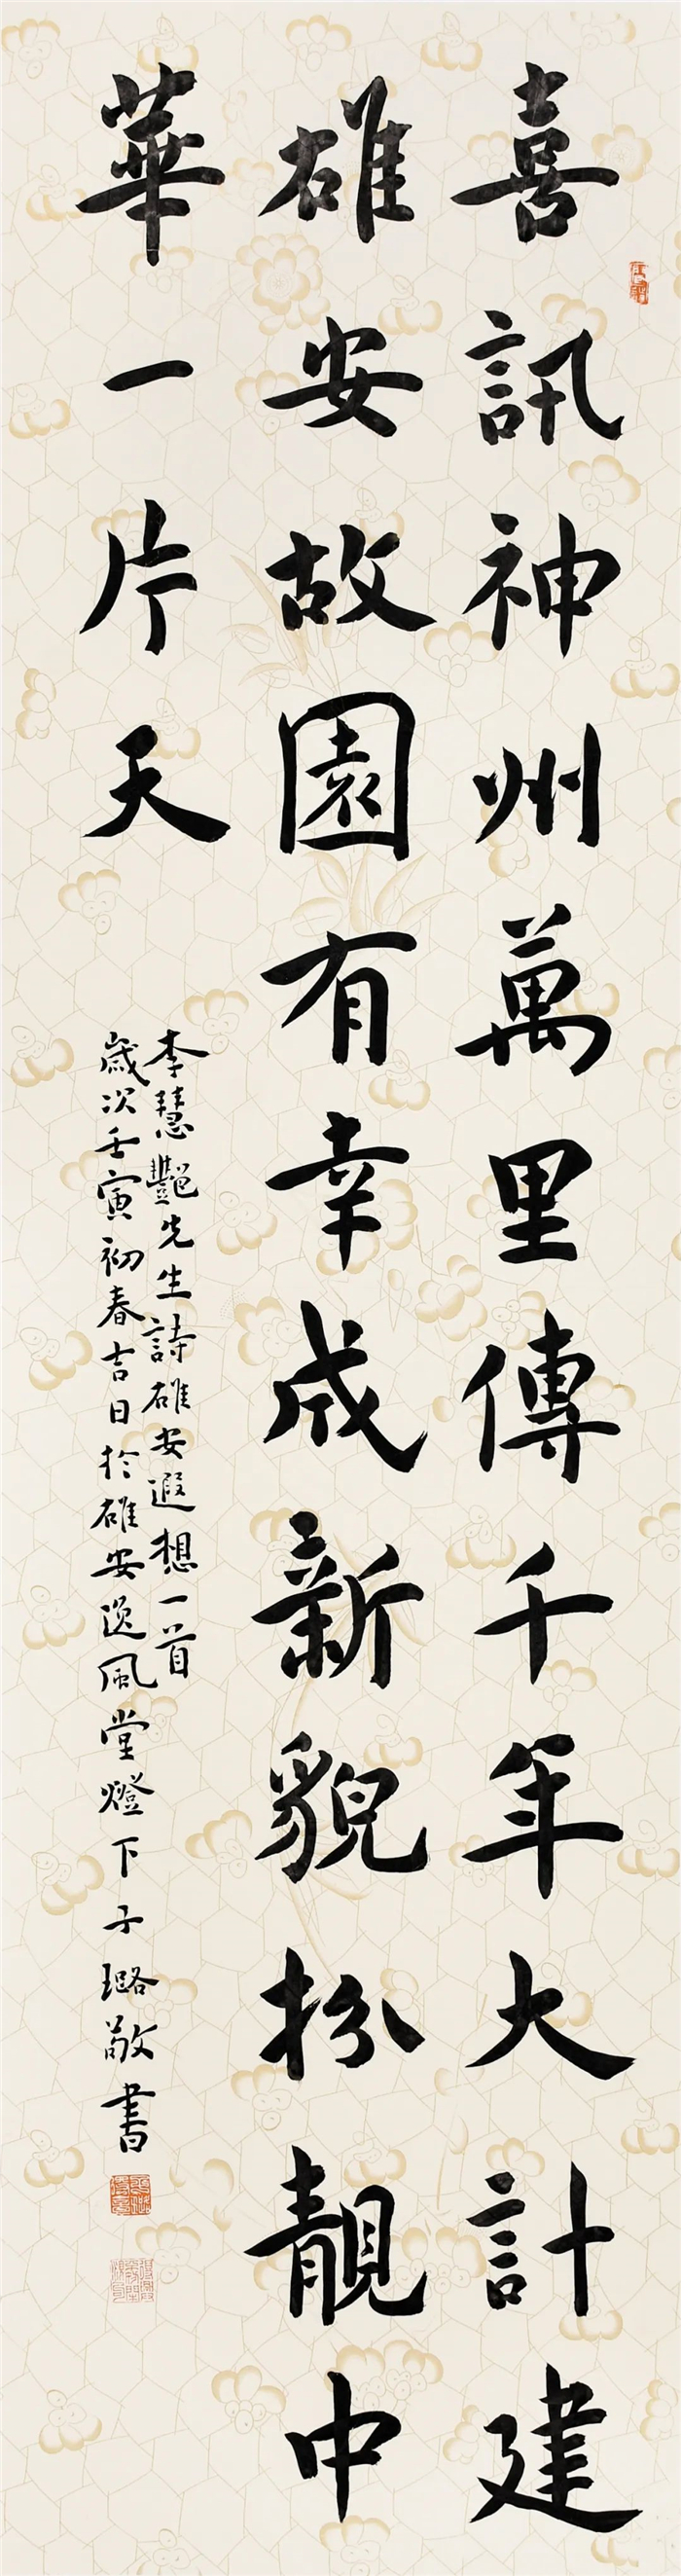 喜訊神州萬里傳千年大計建
雄安故園有幸成新貌扮靚中
華一片天
李慧艷先生詩雄安遐想一首
歲次壬寅初春吉日於雄安逸風堂燈下子璐敬書